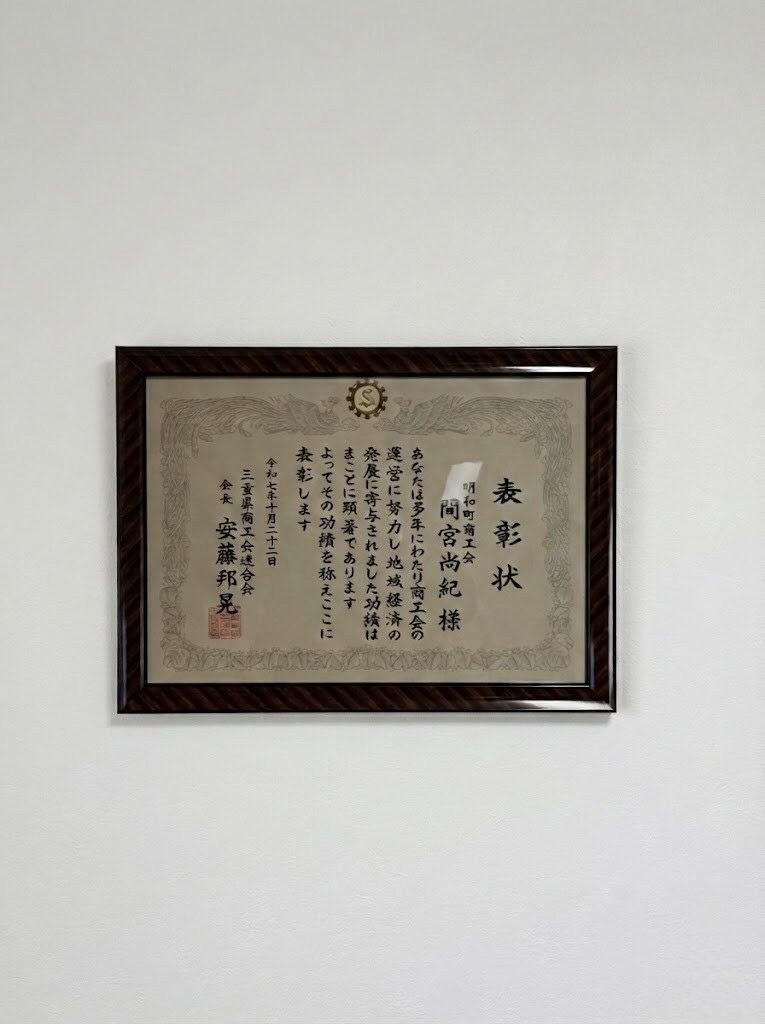 表彰状
明和町商工会
間宮尚紀 様
あなたは多年にわたり商工会の
運営に努力し地域経済の
発展に寄与されました功績は
まことに顕著であります
よってその功績を称えここに
表彰します
令和七年十月二十二日
三重県商工会連合会
会長 安藤邦晃